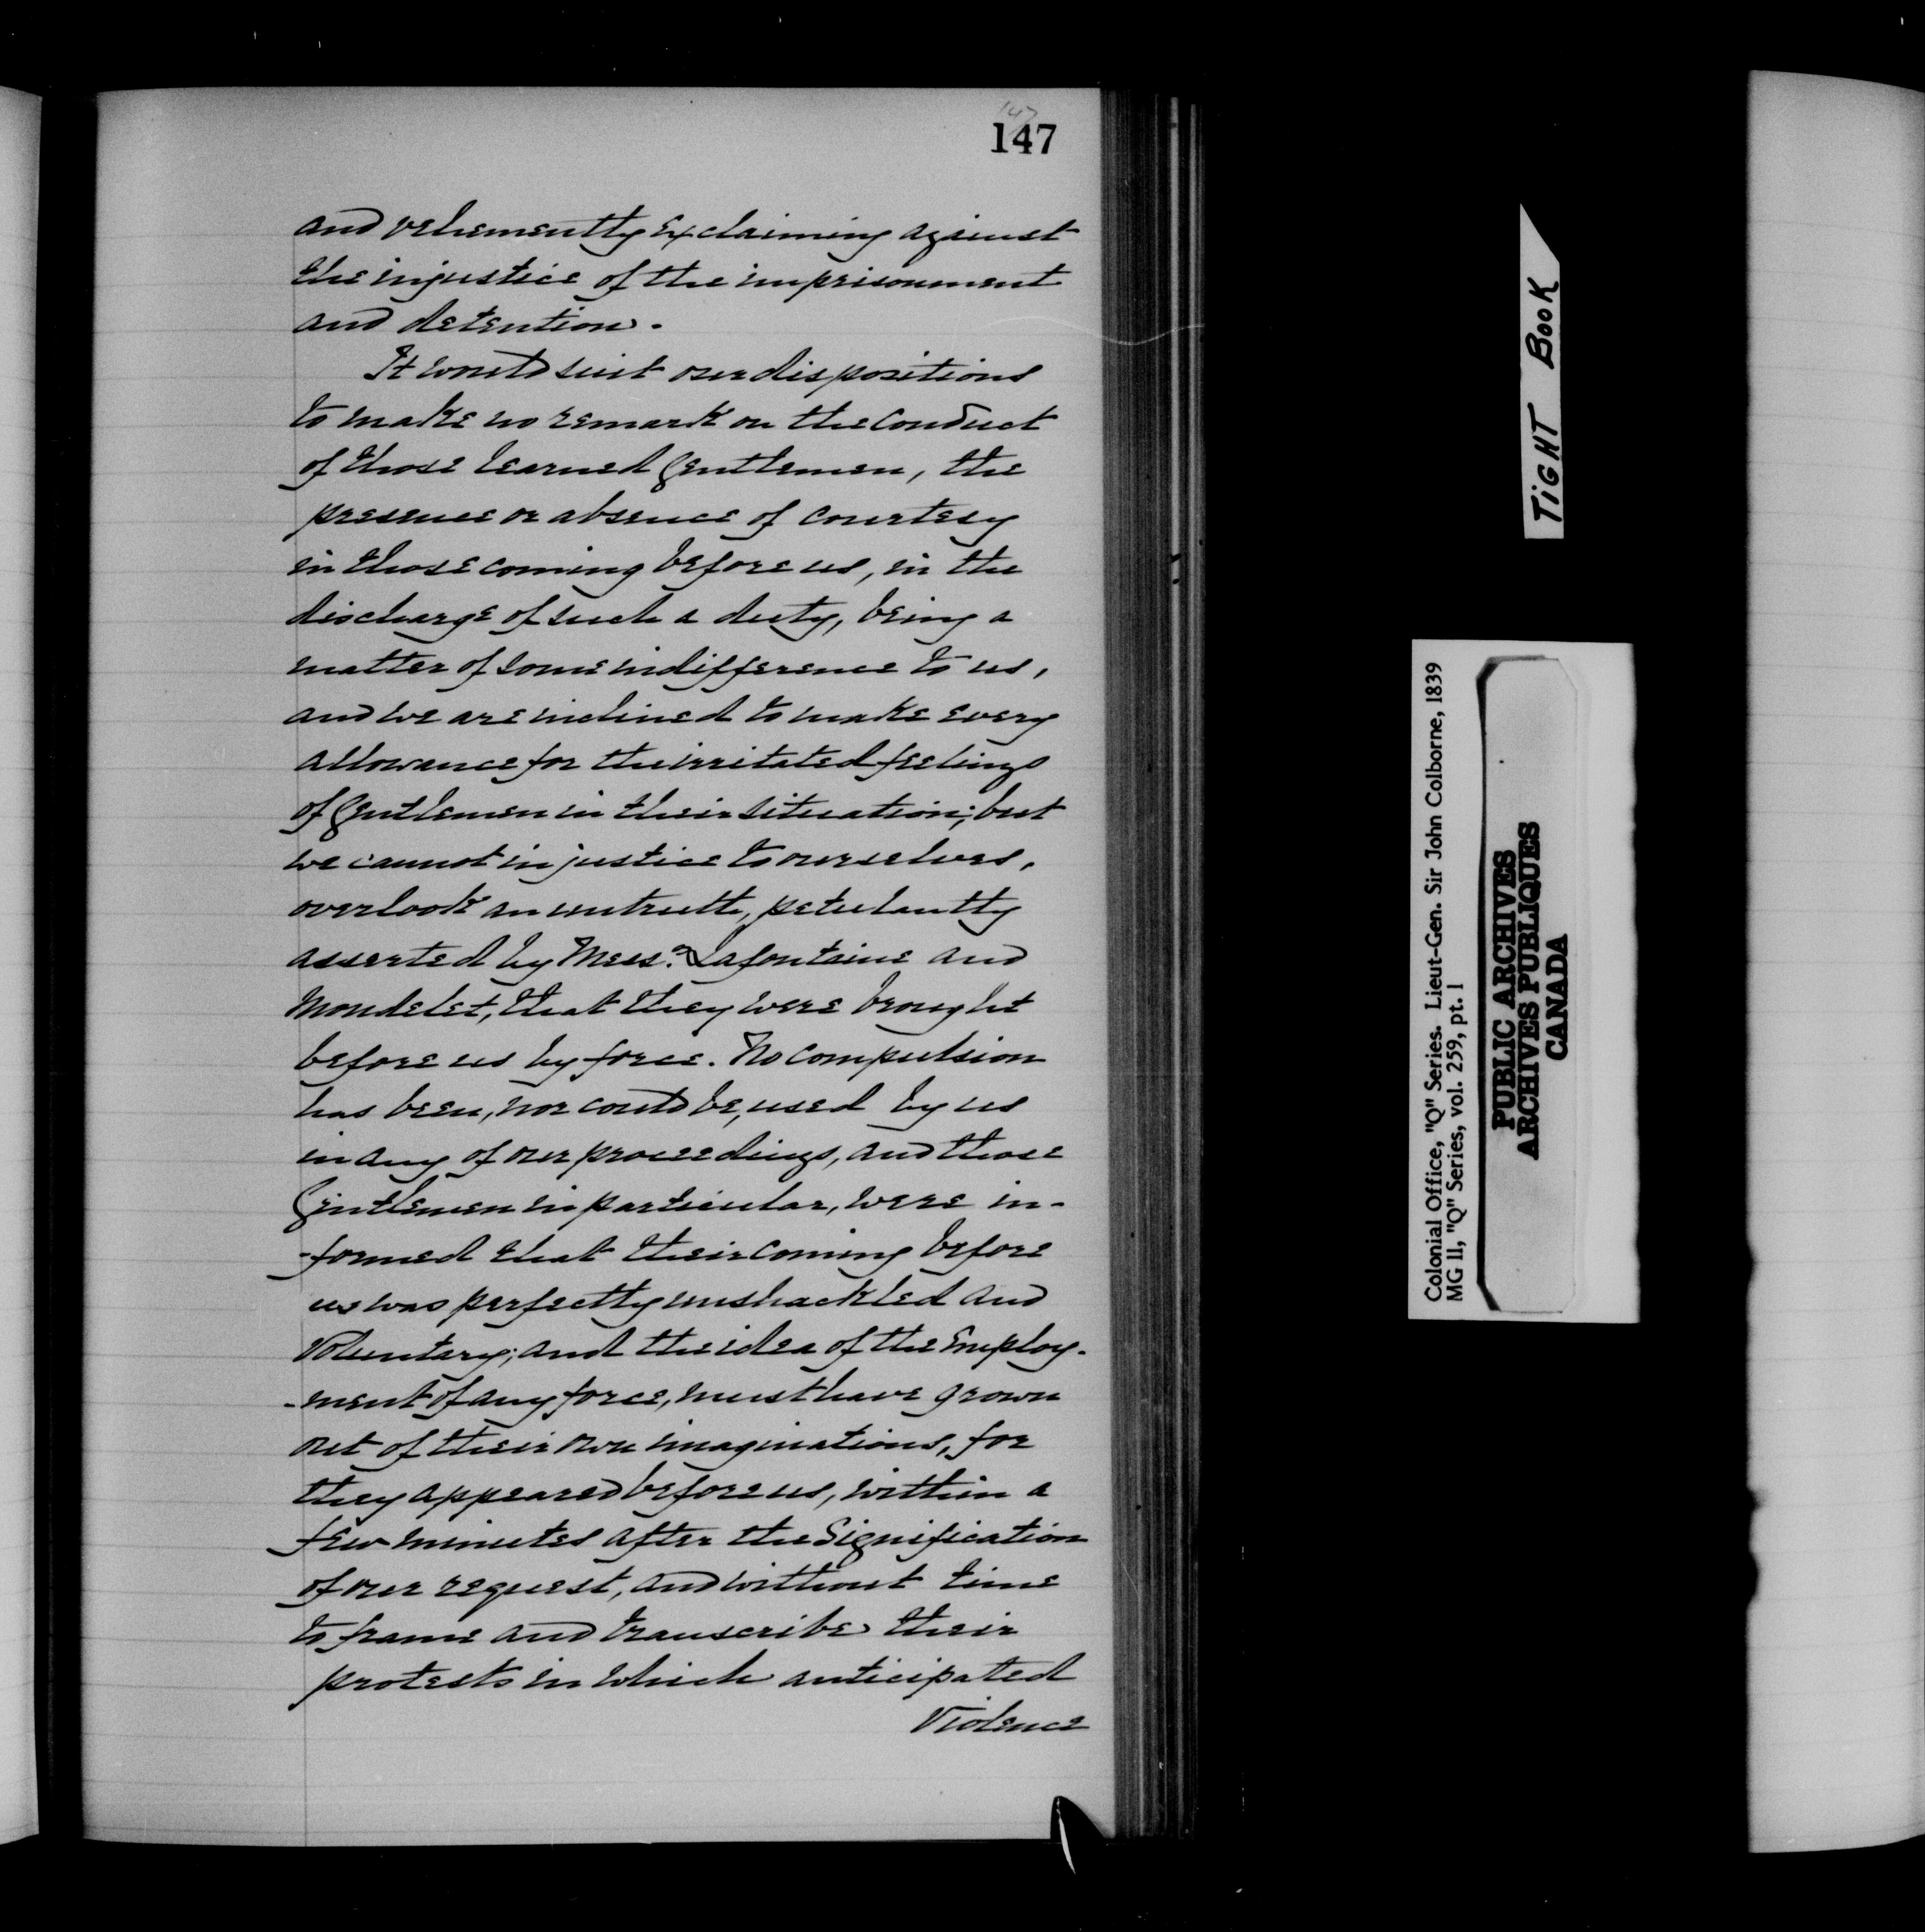 147
147
and vehemently exclaiming against
the injustice of the imprisonment
and detention.
It would suit our dispositions
to make no remark on the conduct
of those learned Gentlemen, the
presence or absence of courtesy
in those coming before us, in the
discharge of such a duty, being a
matter of some indifference to us,
and we are inclined to make every
allowance for the irritated feelings
of Gentlemen in their situation; but
we cannot in justice to ourselves,
overlook an untruth, petulantly
asserted by Mess.rs Lafontaine and
Mondelet, that they were brought
before us by force. No compulsion
has been, nor could be, used by us
in any of our proceedings, and those
Gentlemen in particular, were in-
-formed that their coming before
us was perfectly unshackled and
Voluntary; and the idea of the Employ-
-ment of any force, must have grown
out of their own imaginations, for
they appeared before us, within a
few minutes after the Signification
of our request, and without time
to frame and transcribe their
protests in which anticipated
Violence
TIGHT BOOK
Colonial Office, "Q" Series. Lieut-Gen. Sir John Colborne, 1839
MG 11, "Q" Series, vol. 259, pt. 1
PUBLIC ARCHIVES
ARCHIVES PUBLIQUES
CANADA